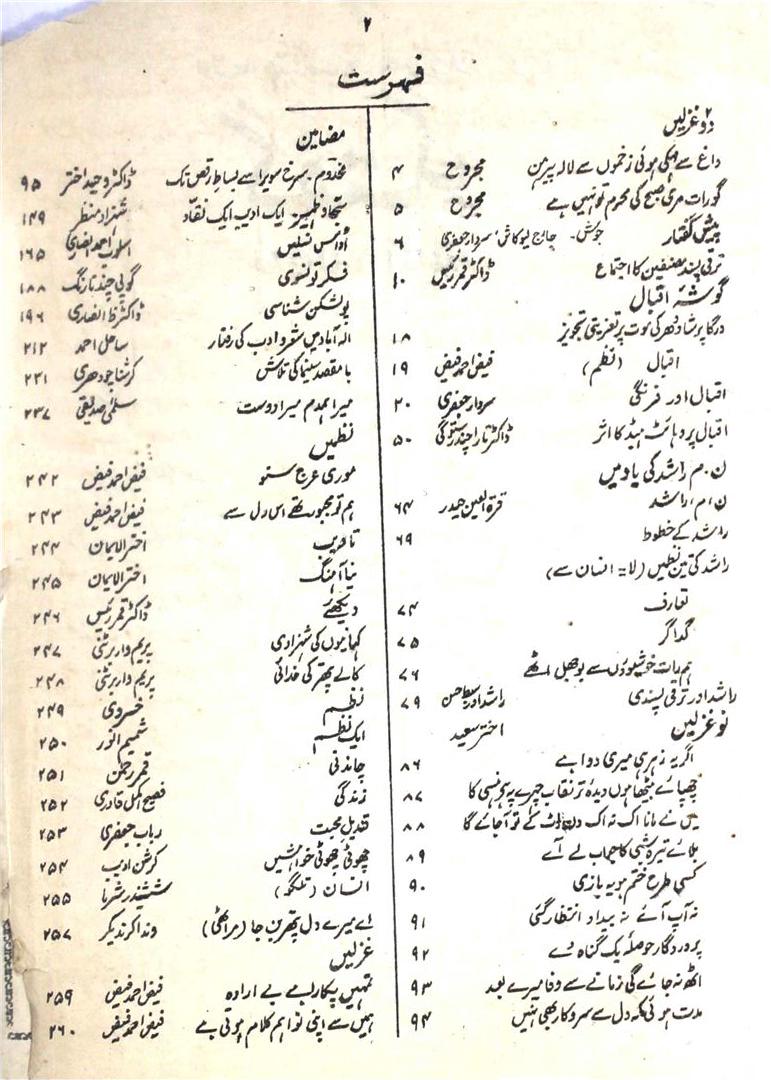 ۲
فہرست
دو غزلیں
داغ سے مہکی ہوئی زخموں سے لالہ پیرہن مجروح ۴
گو رات مری صبح کی محرم تو نہیں ہے مجروح ۵
پیش گفتار جوش۔ جارج لیوکاش، سردار جعفری ۶
ترقی پسند مصنفین کا اجتماع ڈاکٹر قمر رئیس ۱۰
گوشۂ اقبال
درگا پرشاد دھر کی موت پر تعزیتی تجویز ۱۸
اقبال (نظم) فیض احمد فیض ۱۹
اقبال اور فرنگی سردار جعفری ۲۰
اقبال پر وہائٹ ہیڈ کا اثر ڈاکٹر تارا چند رستوگی ۵۰
ن۔م راشد کی یاد میں
ن۔م۔راشد قرۃ العین حیدر ۶۴
راشد کے خطوط ۶۹
راشد کی تین نظمیں (لا = انسان سے)
تعارف ۷۴
گداگر ۷۵
ہم رات خوشبوؤں سے بوجھل اٹھے ۷۶
راشد اور ترقی پسندی راشد اور سبط حسن ۷۹
نو غزلیں اختر سعید
اگر یہ زہر ہی میری دوا ہے ۸۶
چھپائے بیٹھا ہوں دیدۂ تر نقاب چہرے پہ ہے ہنسی کا ۸۷
میں نے مانا اک نہ اک دن لوٹ کے تو آ جائے گا ۸۸
بلائے تیرہ شبی کا جواب لے آئے ۸۹
کسی طرح ختم ہو یہ بازی ۹۰
نہ آپ آئے نہ بیداد انتظار گئی ۹۱
پروردگار حوصلۂ یک گناہ دے ۹۲
اٹھ نہ جائے گی زمانے سے وفا میرے بعد ۹۳
مدت ہوئی کہ دل سے سروکار بھی نہیں ۹۴
مضامین
مخدوم۔ سرخ سویرا سے بساط رقص تک ڈاکٹر وحید اختر ۹۵
سجاد ظہیر۔ ایک ادیب ایک نقاد شہزاد منظر ۱۴۹
آؤٹس نسلیں اسلوب احمد انصاری ۱۶۵
فکر تونسوی گوپی چند نارنگ ۱۸۸
پوشکن شناسی ڈاکٹر ظ انصاری ۱۹۶
الہ آباد میں شعر و ادب کی رفتار ساحل احمد ۲۱۲
با مقصد سینما کی تلاش کرشنا چودھری ۲۲۱
میرا ہمدم میرا دوست سلمیٰ صدیقی ۲۳۷
نظمیں
موری عرج سنو فیض احمد فیض ۲۴۲
ہم تو مجبور تھے اس دل سے فیض احمد فیض ۲۴۳
تادیب اختر الایمان ۲۴۴
نیا آہنگ اختر الایمان ۲۴۵
دیکھئے ڈاکٹر قمر رئیس ۲۴۶
کہانیوں کی شہزادی پریم وار برٹنی ۲۴۷
کالے پتھر کی خدائی پریم وار برٹنی ۲۴۸
نظم خسروی ۲۴۹
ایک نظم شمیم انور ۲۵۰
چاندنی قمر رحمٰن ۲۵۱
زندگی فصیح اکمل قادری ۲۵۲
قندیل محبت رباب جعفری ۲۵۳
چھوٹی چھوٹی خواہشیں کرشن ادیب ۲۵۴
انسان (تلگو) ششندر شرما ۲۵۵
اے میرے دل پتھر بن جا (مراٹھی) وندا کرندیکر ۲۵۷
غزلیں
تمہیں پکارا ہے بے ارادہ فیض احمد فیض ۲۵۹
ہمیں سے اپنی نوا ہم کلام ہوتی ہے فیض احمد فیض ۲۶۰